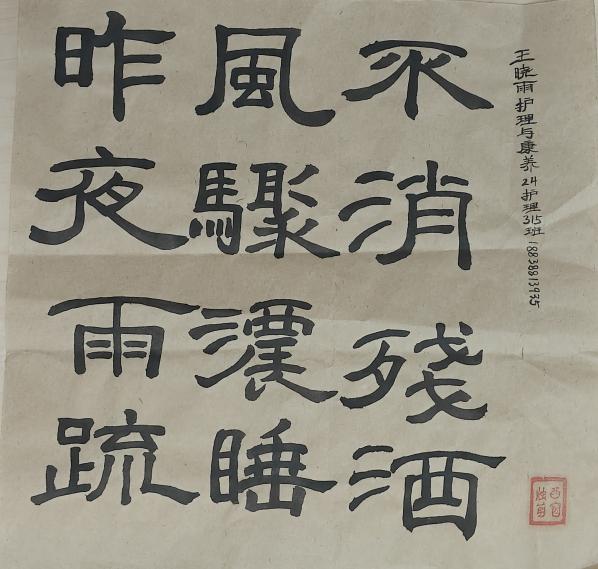 昨夜雨疏
風驟濃睡
不消殘酒
王晓雨护理与康养24护理315班18838813935